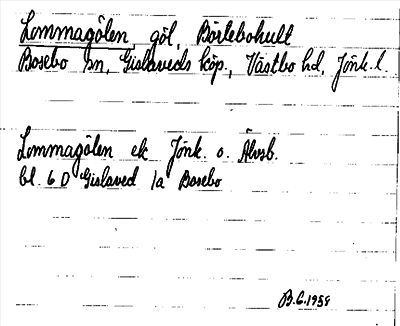 Lommagölen, göl, Börlebohult
Bosebo sn, Gislaveds köp., Västbo hd, Jönk. l.
Lommagölen ek Jönk. o. Älvsb.
bl. 6 D Gislaved 1a Bosebo
B.G. 1959